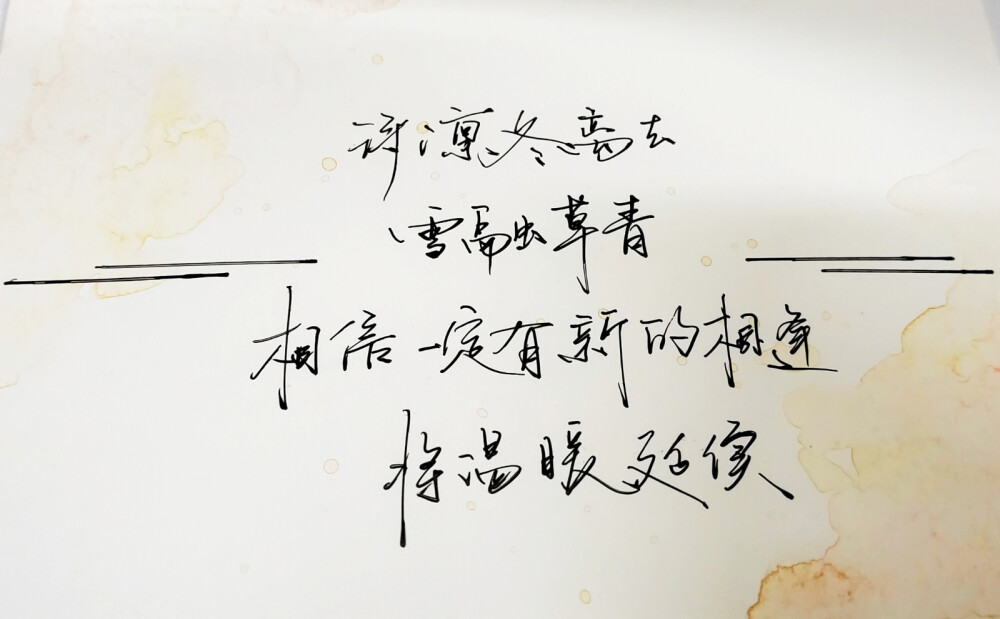 待凛冬离去
雪融出草青
相信一定有新的相逢
将温暖延续